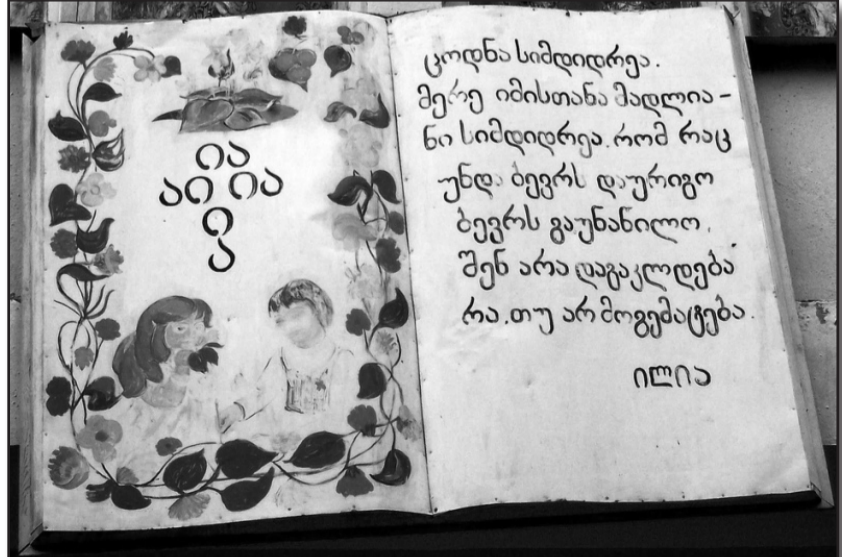 ია
აი ია
ი
ა
ცოდნა სიმდიდრეა.
მერე იმისთანა მადლია-
ნი სიმდიდრეა. რომ რაც
უნდა ბევრს დაურიგო
ბევრს გაუნანილო.
შენ არა დაგაკლდება
რა. თუ არ მოგემატება.
ილია